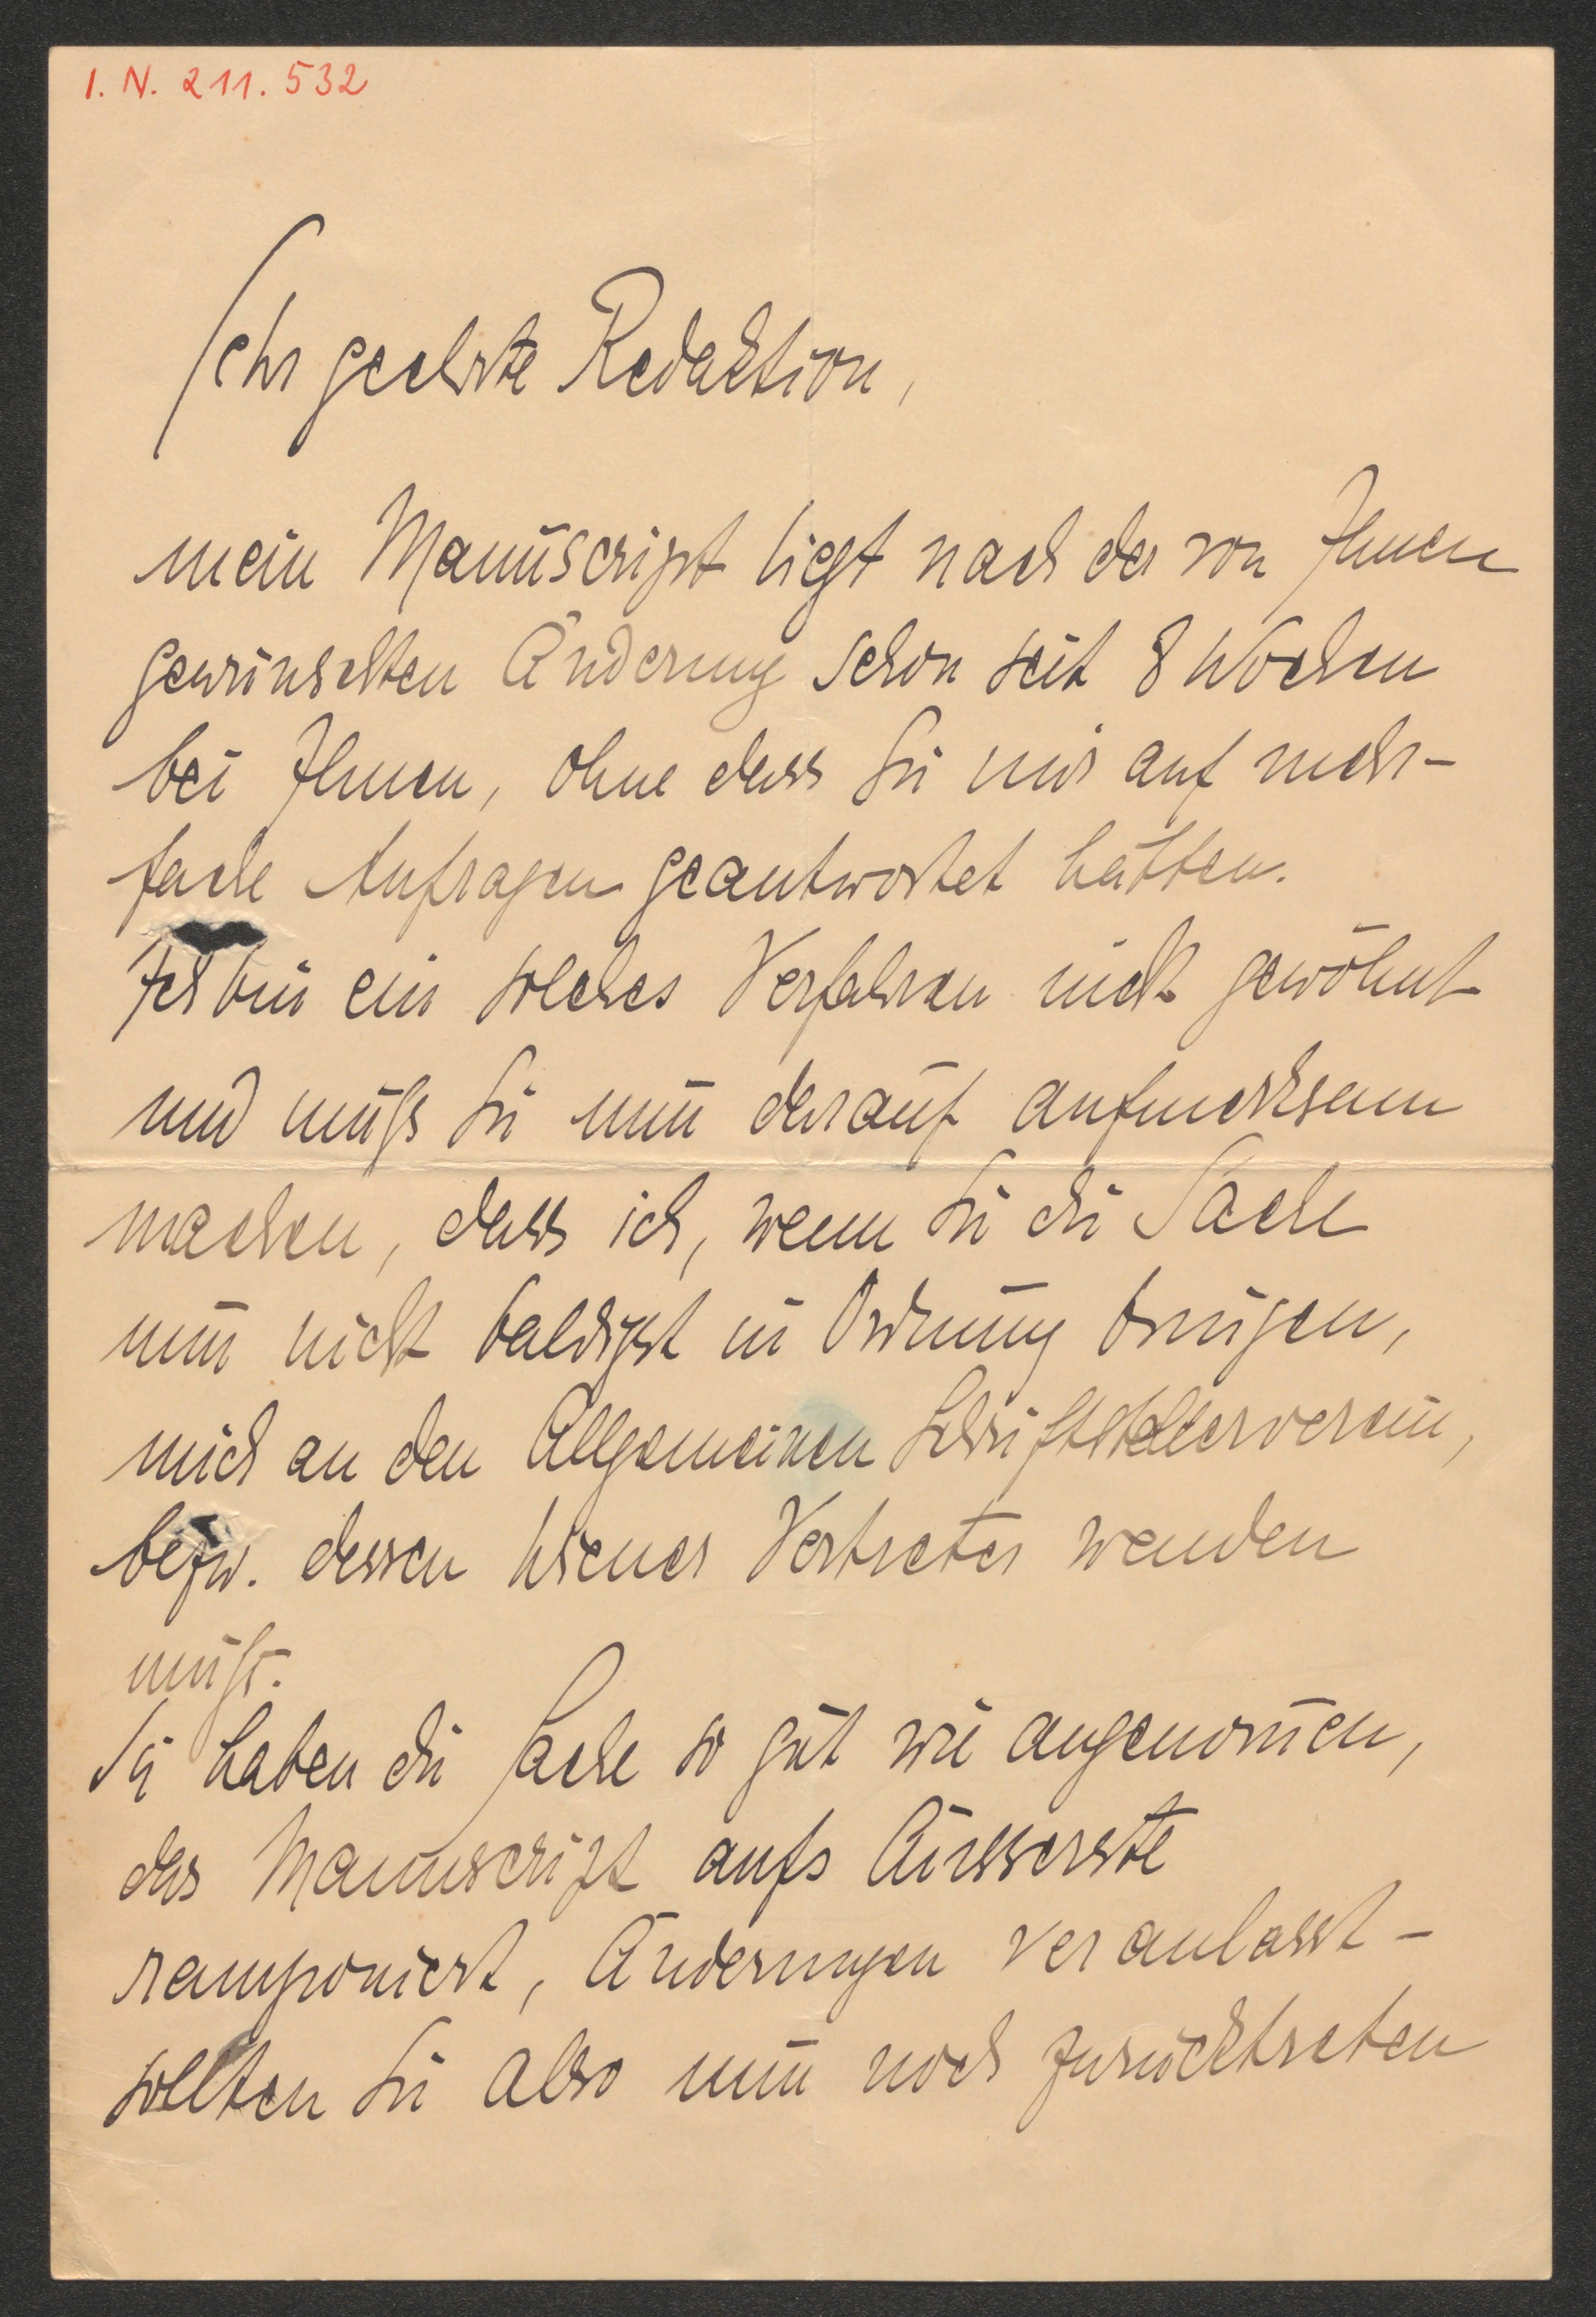 I. N. 211.532
Sehr geehrte Redaktion,
mein Manuscript liegt nach der von Ihnen
gewünschten Änderung schon seit 8 Wochen
bei Ihnen, ohne dass Sie mir auf mehr-
fache Anfragen geantwortet hätten.
Ich bin ein solches Verfahren nicht gewöhnt
und muß Sie nun darauf aufmerksam
machen, dass ich, wenn Sie die Sache
nun nicht baldigst in Ordnung bringen,
mich an den Allgemeinen Schriftstellerverein,
bezw. dessen Wiener Vertreter wenden
muß.
Sie haben die Sache so gut wie angenom̅en,
das Manuscript aufs Äusserste
ramponiert, Änderungen veranlasst –
sollten Sie also nun noch zurücktreten